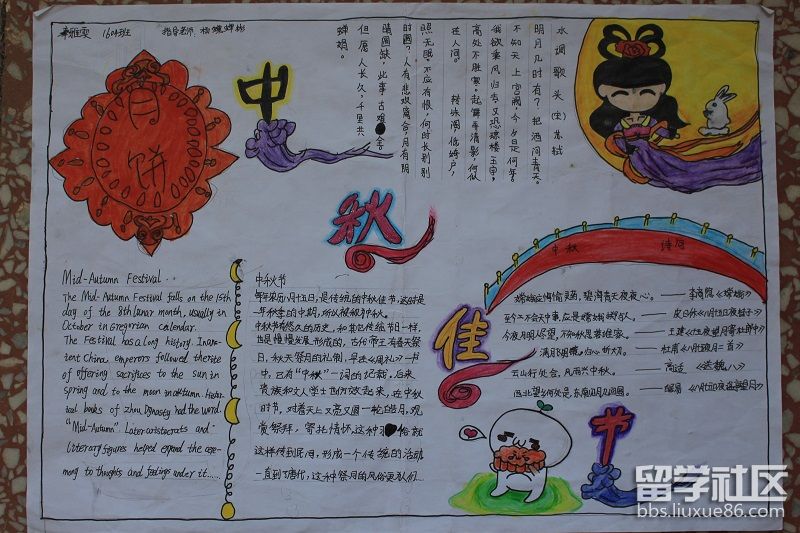 1604班
指导老师
月饼
中
秋
佳
节
水调歌头(宋)苏轼
明月几时有?把酒问青天。
不知天上宫阙,今夕是何年。
我欲乘风归去,又恐琼楼玉宇,
高处不胜寒。起舞弄清影,何似
在人间。 转朱阁,低绮户,
照无眠。不应有恨,何时长别
时圆?人有悲欢离合,月有阴
晴圆缺,此事古难全
但愿人长久,千里共
婵娟。
Mid-Autumn Festival...
The Mid-Autumn Festival falls on the 15th
day of the 8th lunar month, usually in
October in Gregorian calendar.
The Festival has a long history. In an
cient China, emperors followed the rite
of offering sacrifices to the sun in
spring and to the moon in autumn. Histor
ical books of Zhou Dynasty had the word
"Mid-Autumn". Later aristocrats and
literary figures helped expand the cere-
mony to thoughts and feelings under it.....
中秋节
每年农历八月十五日,是传统的中秋佳节,这时是
一年秋季的中期,所以被称为中秋。
中秋节有悠久的历史,和其它传统节日一样,
也是慢慢发展形成的,古代帝王有春天祭
日,秋天祭月的礼制,早在《周礼》一书
中,已有“中秋”一词的记载,后来
贵族和文人学士也仿效起来,在中秋
时节,对着天上又亮又圆一轮皓月,观
赏祭拜,寄托情怀,这种习俗就
这样传到民间,形成一个传统的活动
一直到了唐代,这种祭月的风俗更为人们
中秋 诗词
嫦娥应悔偷灵药,碧海青天夜夜心。——李商隐《嫦娥》
至今不会天中事,应是嫦娥掷与人。——皮日休《八月十五夜桂子》
今夜月明人尽望,不知秋思落谁家。——王建《十五夜望月寄杜郎中》
满月飞明镜,归心折大刀。——杜甫《八月十五夜月二首》
云山行处合,风雨兴中秋。——高适《送魏八》
西北望乡何处是,东南见月几回圆。
留学社区
bbs.liuxue86.com